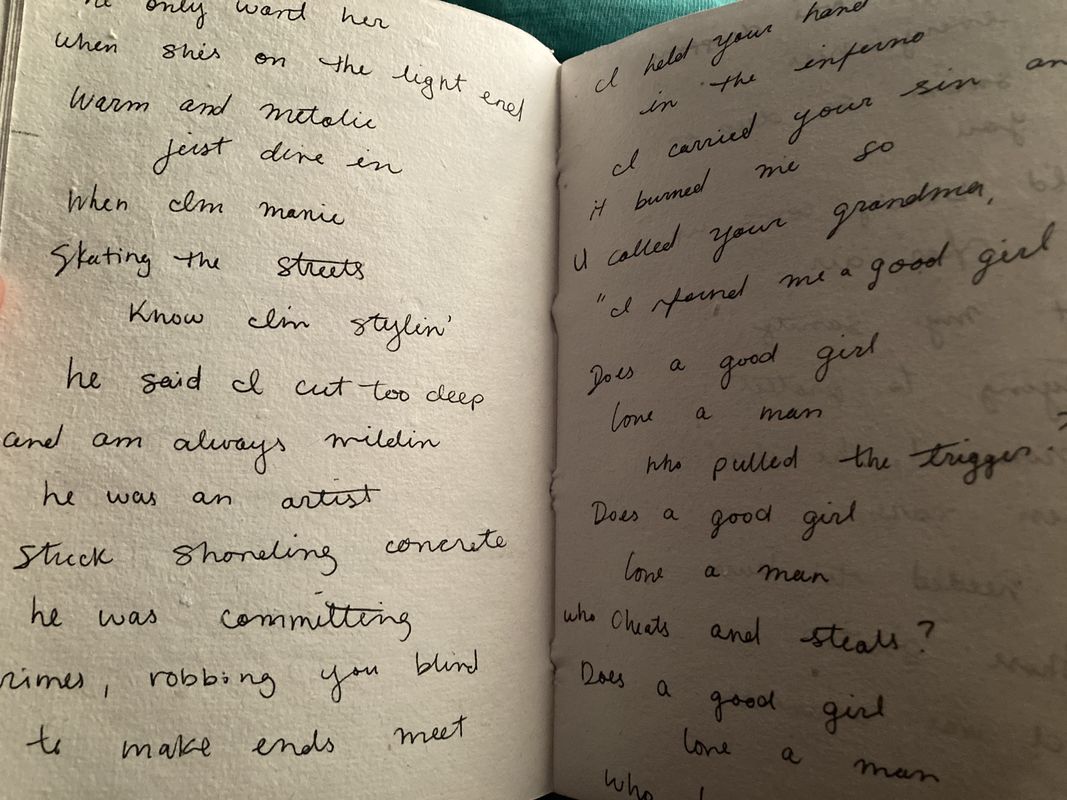 he only want her
when shes on the light end
Warm and metalic
just dive in
When Im manic
Skating the streets
Know Im stylin'
he said I cut too deep
and am always wildin
he was an artist
Stuck shoveling concrete
he was committing
rimes, robbing you blind
to make ends meet
I held your hand
in the inferno
I carried your sin an
it burned me so
U called your grandma,
"I found me a good girl
Does a good girl
love a man
who pulled the trigger?
Does a good girl
love a man
who cheats and steals?
Does a good girl
love a man
who